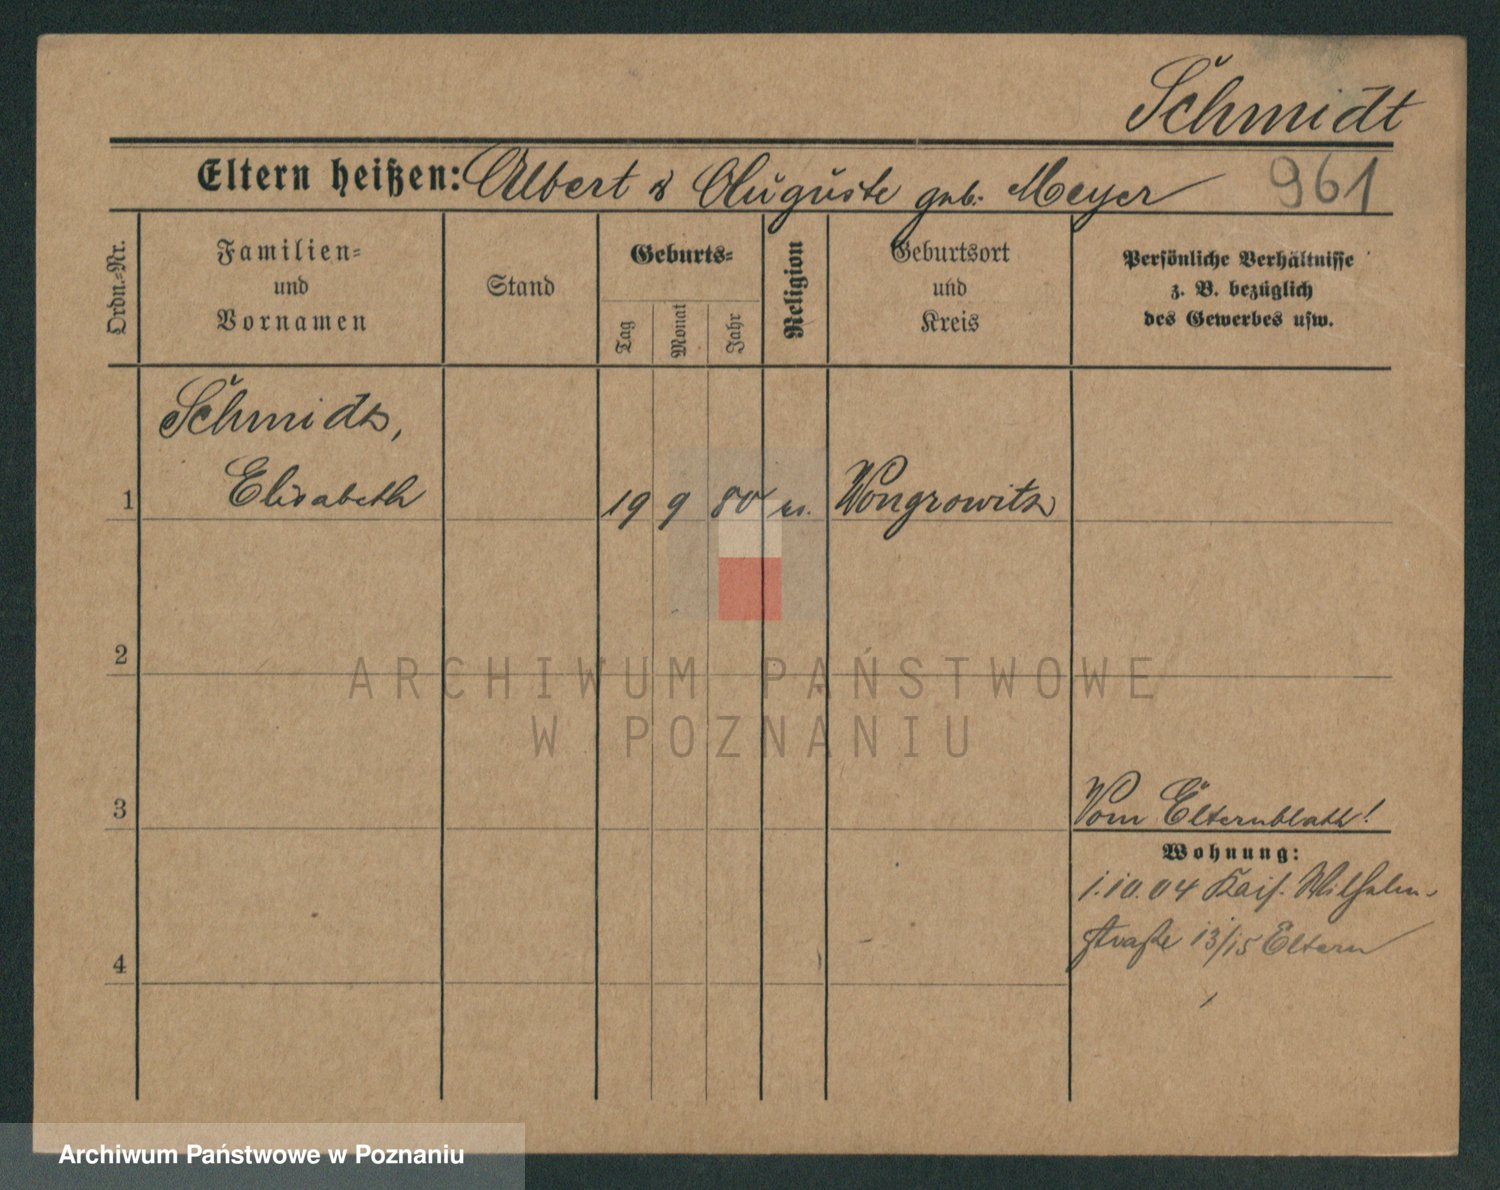 Schmidt
Eltern heißen: Albert & Auguste geb. Meyer 961
Ordn.-Nr.
Familien-
und
Vornamen
Stand
Geburts-
Tag
Monat
Jahr
Religion
Geburtsort
und
Kreis
Persönliche Verhältnisse
z. B. bezüglich
des Gewerbes usw.
Schmidt,
1 Elisabeth 19 9 80 Wongrowitz
2
ARCHIWUM PAŃSTWOWE
W POZNANIU
3 Vom Elternblatt!
Wohnung:
1.10.04 Kais. Wilhelm-
straße 13/15 Eltern
4
Archiwum Państwowe w Poznaniu